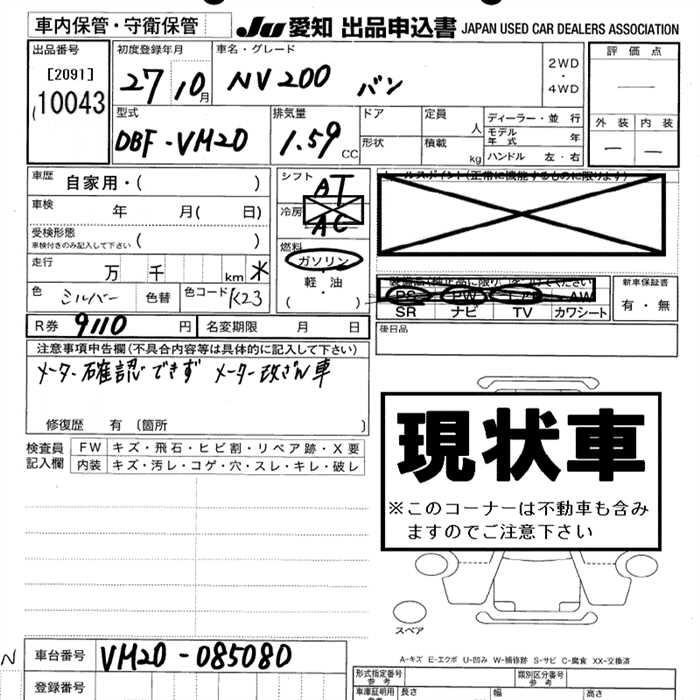 車内保管・守衛保管 JU 愛知 出品申込書 JAPAN USED CAR DEALERS ASSOCIATION
出品番号 初度登録年月 車名・グレード 評価点
[2091] 27 10月 NV200 バン 2WD・4WD
10043
型式 排気量 ドア 定員 人 ディーラー・並行 外装 内装
DBF-VM20 1.59 CC 形状 積載 kg モデル年式
ハンドル 左・右
車歴 自家用・( ) シフト AT
車検 年 月( 日) 冷房 AC
受検形態 ( )
車検付きのみ記入して下さい
燃料 ガソリン・軽油・( )
走行 万 千 km
色 シルバー 色替 色コード K23
PS PW エアB AW
SR ナビ TV カワシート
新車保証書 有・無
R券 9110 円 名変期限 月 日
後日品
注意事項申告欄(不具合内容等は具体的に記入して下さい)
メーター確認できず メーター改ざん車
修復歴 有 〔箇所 〕
検査員記入欄 FW キズ・飛石・ヒビ割・リペア跡・X要
内装 キズ・汚レ・コゲ・穴・スレ・キレ・破レ
現状車
※このコーナーは不動車も含み
ますのでご注意下さい
スペア
A-キズ E-エクボ U-凹み W-補修跡 S-サビ C-腐食 XX-交換済
N 車台番号 VM20-085080
登録番号
形式指定番号 参考 類別区分番号 参考
車庫証明用 長さ 幅 高さ